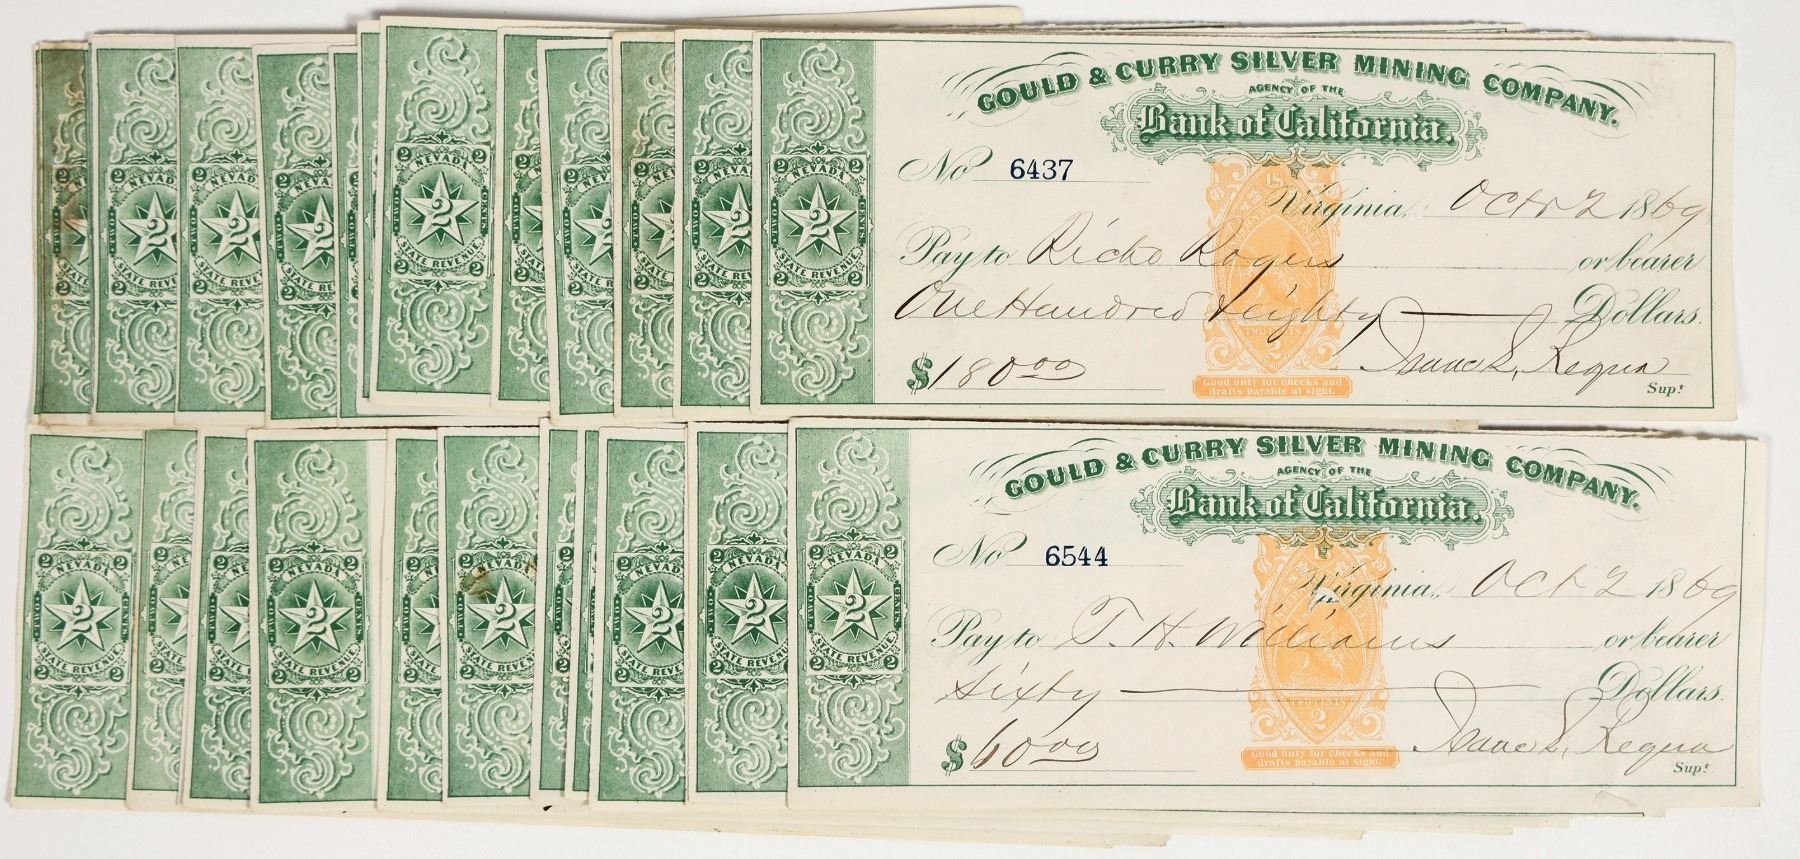 GOULD & CURRY SILVER MINING COMPANY.
AGENCY OF THE
Bank of California.
No 6437
Virginia, Oct 2 1869
Pay to Richd Rogers or bearer
One Hundred & eighty Dollars.
$180.00 Isaac L. Requa
Supt.
TWO CENTS
2
Good only for checks and
drafts payable at sight.
2 NEVADA 2
TWO 2 CENTS
STATE REVENUE.
2 2
GOULD & CURRY SILVER MINING COMPANY.
AGENCY OF THE
Bank of California.
No 6544
Virginia, Oct 2 1869
Pay to T. H. Williams or bearer
Sixty Dollars.
$60.00 Isaac L. Requa
Supt.
TWO CENTS
2
Good only for checks and
drafts payable at sight.
2 NEVADA 2
TWO 2 CENTS
STATE REVENUE.
2 2